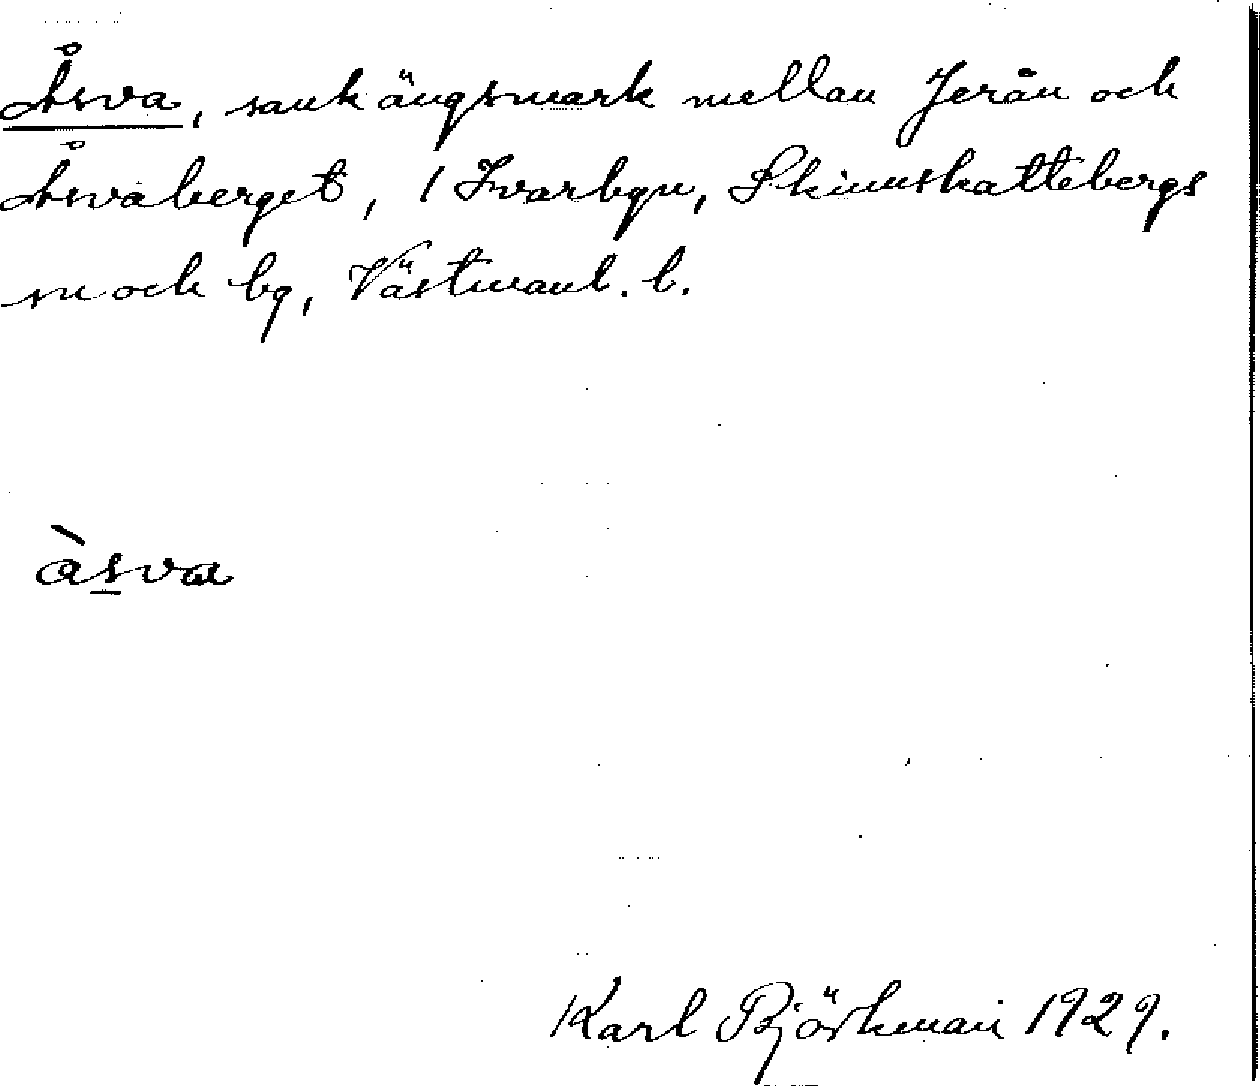 Åsva, sank ängsmark mellan Jerån och
Åsvaberget, 1 Ivarbyn, Skinnskattebergs
sn och bg, Västmanl. l.
àsva
Karl Björkman 1929.